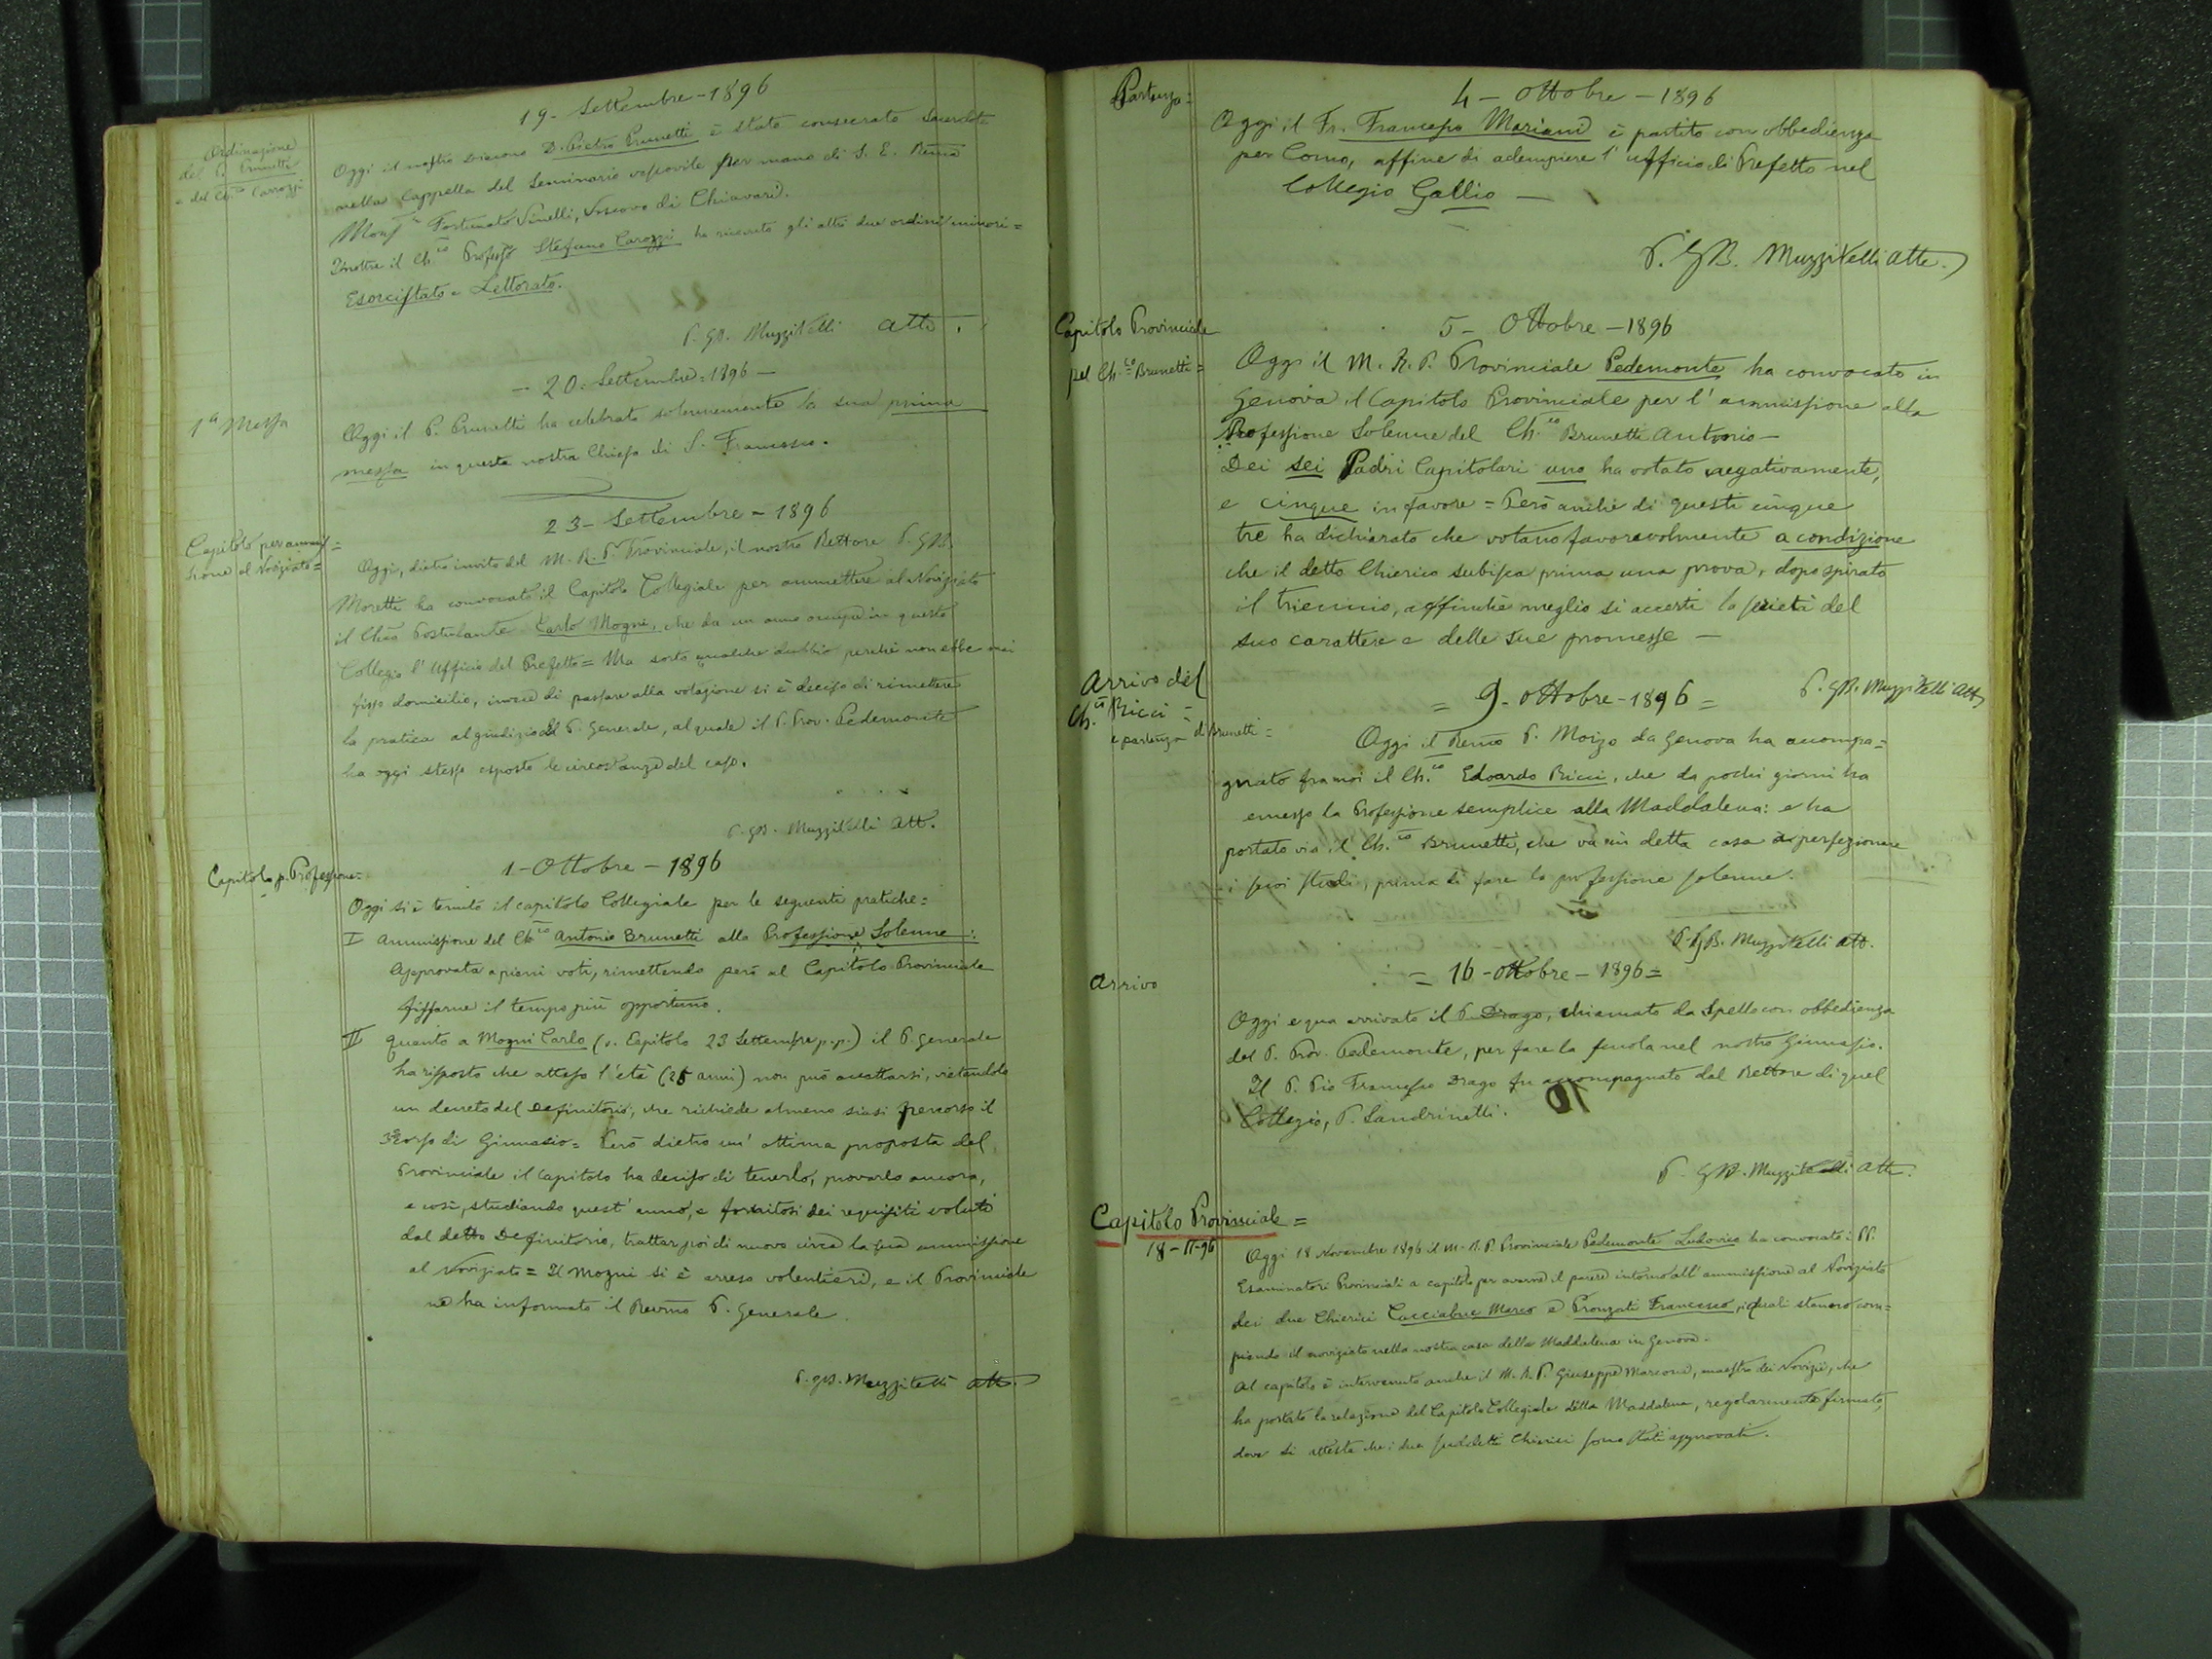 19 - Settembre - 1896
Ordinazione
del P. Prunetti
e del Ch.co Carrozzi
Oggi il nostro Diacono D. Pietro Prunetti è stato consecrato Sacerdote
nella Cappella del Seminario vescovile per mano di S. E. Rma
Monsr Fortunato Vinelli, Vescovo di Chiavari.
Inoltre il Ch.co Professo Stefano Carozzi ha ricevuto gli altri due ordini minori =
Esorcistato e Lettorato.
P. GB. Muzzitelli att.
- 20 = Settembre = 1896 -
1a Messa
Oggi il P. Prunetti ha celebrato solennemente la sua prima
messa in questa nostra Chiesa di S. Francesco.
23 - Settembre - 1896
Capitolo per ammis=
sione al Noviziato =
Oggi, dietro invito del M. R. P. Provinciale, il nostro Rettore P. GB.
Moretti ha convocato il Capitolo Collegiale per ammettere al Noviziato
il Chco Postulante Carlo Mogni, che da un anno occupa in questo
Collegio l'Ufficio del Prefetto = Ma sorto qualche dubbio perché non ebbe mai
fisso domicilio, invece di passare alla votazione si è deciso di rimettere
la pratica al giudizio del P. Generale, al quale il P. Prov. Pedemonte
ha oggi stesso esposto le circostanze del caso.
P. GB. Muzzitelli att.
1 - Ottobre - 1896
Capitolo p. Professione =
Oggi si è tenuto il capitolo Collegiale per le seguenti pratiche =
I Ammissione del Ch.co Antonio Brunetti alla Professione Solenne :
Approvata a pieni voti, rimettendo però al Capitolo Provinciale
fissarne il tempo più opportuno.
II Quanto a Mogni Carlo (v. Capitolo 23 Settembre p.p.) il P. Generale
ha risposto che atteso l'età (25 anni) non può accettarsi, vietandolo
un decreto del Definitorio, che richiede almeno siasi percorso il
3° corso di Ginnasio = Però dietro un' ottima proposta del
Provinciale il Capitolo ha deciso di tenerlo, provarlo ancora,
e così, studiando quest' anno, e fornitosi dei requisiti voluti
dal detto Definitorio, trattar poi di nuovo circa la sua ammissione
al Noviziato = Il Mogni si è arreso volentieri, e il Provinciale
ne ha informato il Revmo P. Generale.
P. GB. Muzzitelli att.
Partenza =
4 - Ottobre - 1896
Oggi il Fr. Francesco Mariani è partito con obbedienza
per Como, affine di adempiere l' ufficio di Prefetto nel
Collegio Gallio -
P. GB. Muzzitelli att.
Capitolo Provinciale
pel Ch.co Brunetti =
5 - Ottobre - 1896
Oggi il M. R. P. Provinciale Pedemonte ha convocato in
Genova il Capitolo Provinciale per l' ammissione alla
Professione Solenne del Ch.co Brunetti Antonio -
Dei sei Padri Capitolari uno ha votato negativamente,
e cinque in favore = Però anche di questi cinque
tre ha dichiarato che votano favorevolmente a condizione
che il detto Chierico subisca prima una prova, dopo spirato
il triennio, affinché meglio si accerti la serietà del
suo carattere e delle sue promesse -
P. GB. Muzzitelli att.
Arrivo del
Ch.co Ricci =
e partenza di Brunetti =
= 9 - Ottobre - 1896 =
Oggi il Remo P. Moizo da Genova ha accompa=
gnato fra noi il Ch.co Edoardo Ricci, che da pochi giorni ha
emesso la Professione semplice alla Maddalena: e ha
portato via il Ch.co Brunetti, che va in detta casa a perfezionare
i suoi studi, prima di fare la professione solenne.
P. GB. Muzzitelli att.
= 16 - Ottobre - 1896 =
Arrivo
Oggi e qua arrivato il P. Drago, chiamato da Spello con obbedienza
del P. Prov. Pedemonte, per fare la scuola nel nostro Ginnasio.
Il P. Pio Francesco Drago fu accompagnato dal Rettore di quel
Collegio, P. Sandrinelli.
P. GB. Muzzitelli att.
Capitolo Provinciale =
18 - 11 - 96
Oggi 18 Novembre 1896 il M. R. P. Provinciale Pedemonte Ludovico ha convocato i PP.
Esaminatori Provinciali a capitolo per averne il parere intorno all' ammissione al Noviziato
dei due Chierici Cacciabue Marco e Pronzati Francesco, i quali stanno com=
piendo il noviziato nella nostra casa della Maddalena in Genova.
Al capitolo è intervenuto anche il M. R. P. Giuseppe Marconi, maestro dei Novizii, che
ha portato la relazione del Capitolo Collegiale della Maddalena, regolarmente firmato,
dove si attesta che i due suddetti Chierici sono stati approvati.